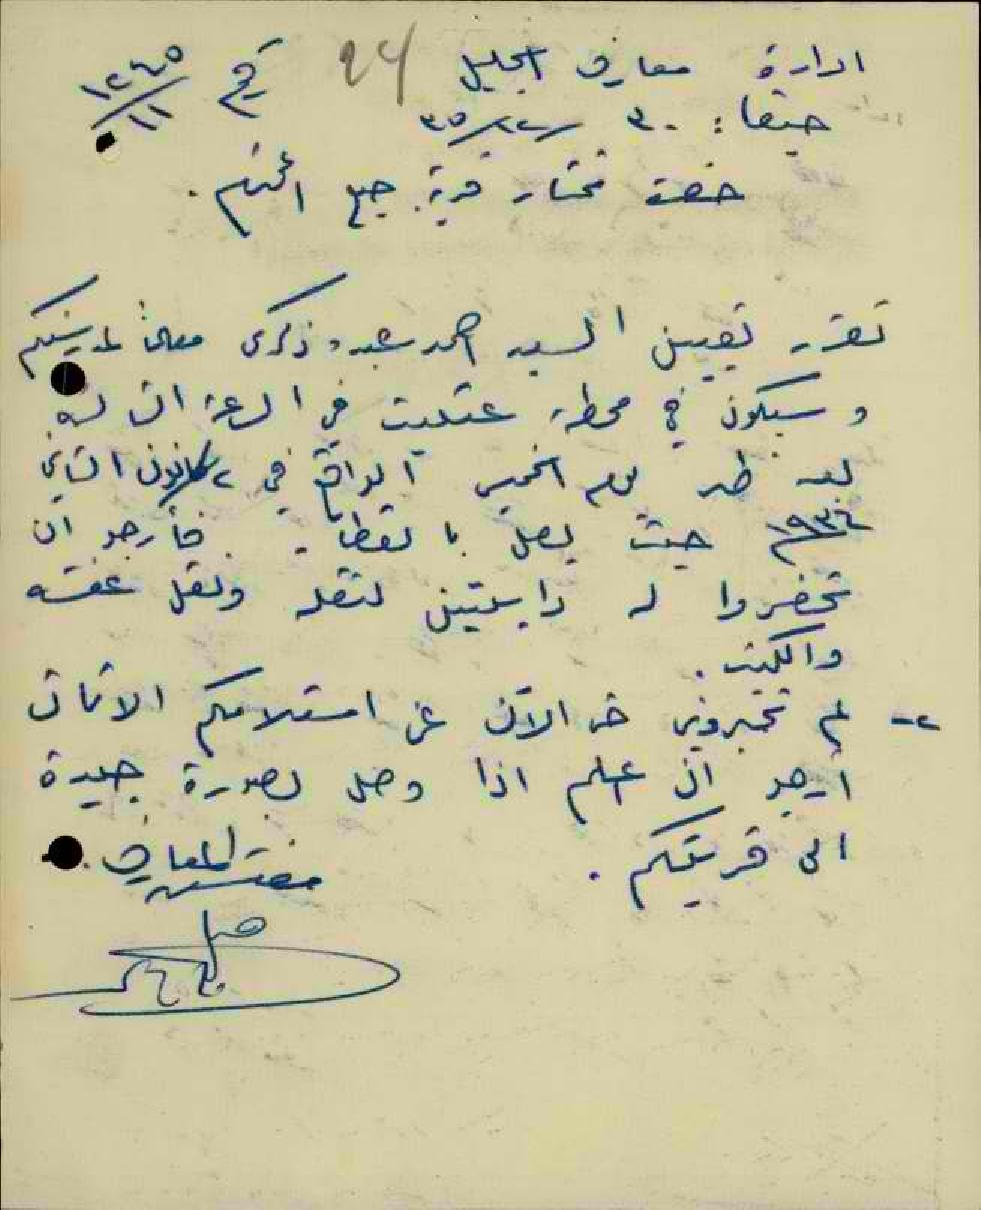 ادارة معارف الجليل 24 ١٢٤٥/١١
حيفا: ٣٠/١٢/٣٥
حضرة مختار قرية جبع المحترم.
تقرر تعيين السيد احمد عبده زكري معلماً لمدرستكم
وسيكون في محطة عتليت في الساعة الثالثة
بعد ظهر يوم الخميس الواقع في ٢ كانون الثاني
١٩٣٦ حيث يصل بالقطار. فأرجو ان
تحضروا له دابتين لنقله ونقل عفشه
والكتب.
٢- لم تخبروني حتى الآن عن استلامكم الاثاث
أرجو ان اعلم اذا وصل بصورة جيدة
الى قريتكم.
مفتش المعارف